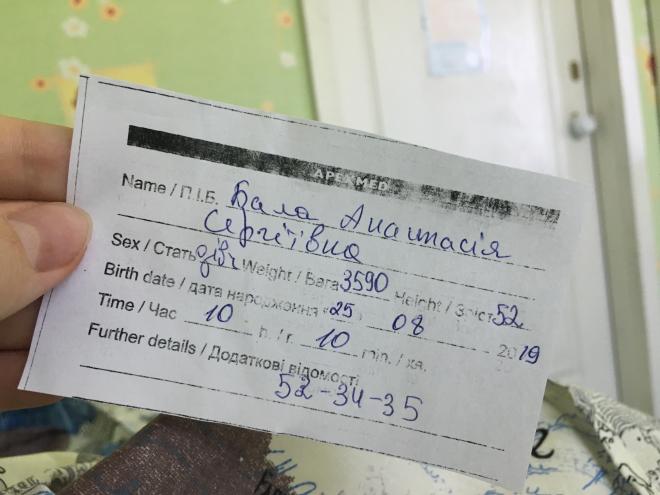 APEXMED
Name / П.І.Б. Бала Анастасія
Сергіївна
Sex / Стать дівч Weight / Вага 3590 Height / Зріст 52
Birth date / дата народження «25 08 2019
Time / Час 10 h. / г. 10 min. / хв.
Further details / Додаткові відомості
52-34-35